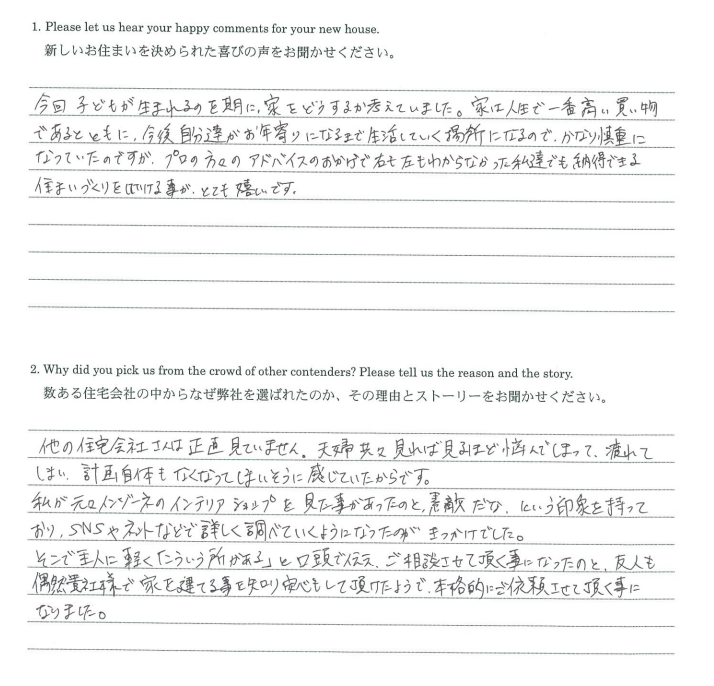 1. Please let us hear your happy comments for your new house.
新しいお住まいを決められた喜びの声をお聞かせください。
今回子どもが生まれるのを期に、家をどうするか考えていました。家は人生で一番高い買い物
であるとともに、今後自分達がお年寄りになるまで生活していく場所になるので、かなり慎重に
なっていたのですが、プロの方々のアドバイスのおかげで右も左もわからなかった私達でも納得できる
住まいづくりを始ける事が、とても嬉しいです。
2. Why did you pick us from the crowd of other contenders? Please tell us the reason and the story.
数ある住宅会社の中からなぜ弊社を選ばれたのか、その理由とストーリーをお聞かせください。
他の住宅会社さんは正直見ていません。夫婦共々見れば見るほど悩んでしまって、疲れて
しまい、計画自体もなくなってしまいそうに感じていたからです。
私が元々インゾーネのインテリアショップを見た事があったのと、素敵だな、という印象を持って
おり、SNSやネットなどで詳しく調べていくようになったのがきっかけでした。
そこで主人に軽く「こういう所がある」と口頭で伝え、ご相談させて頂く事になったのと、友人も
偶然貴社様で家を建てる事を知り安心もして頂けたようで、本格的にご依頼させて頂く事に
なりました。